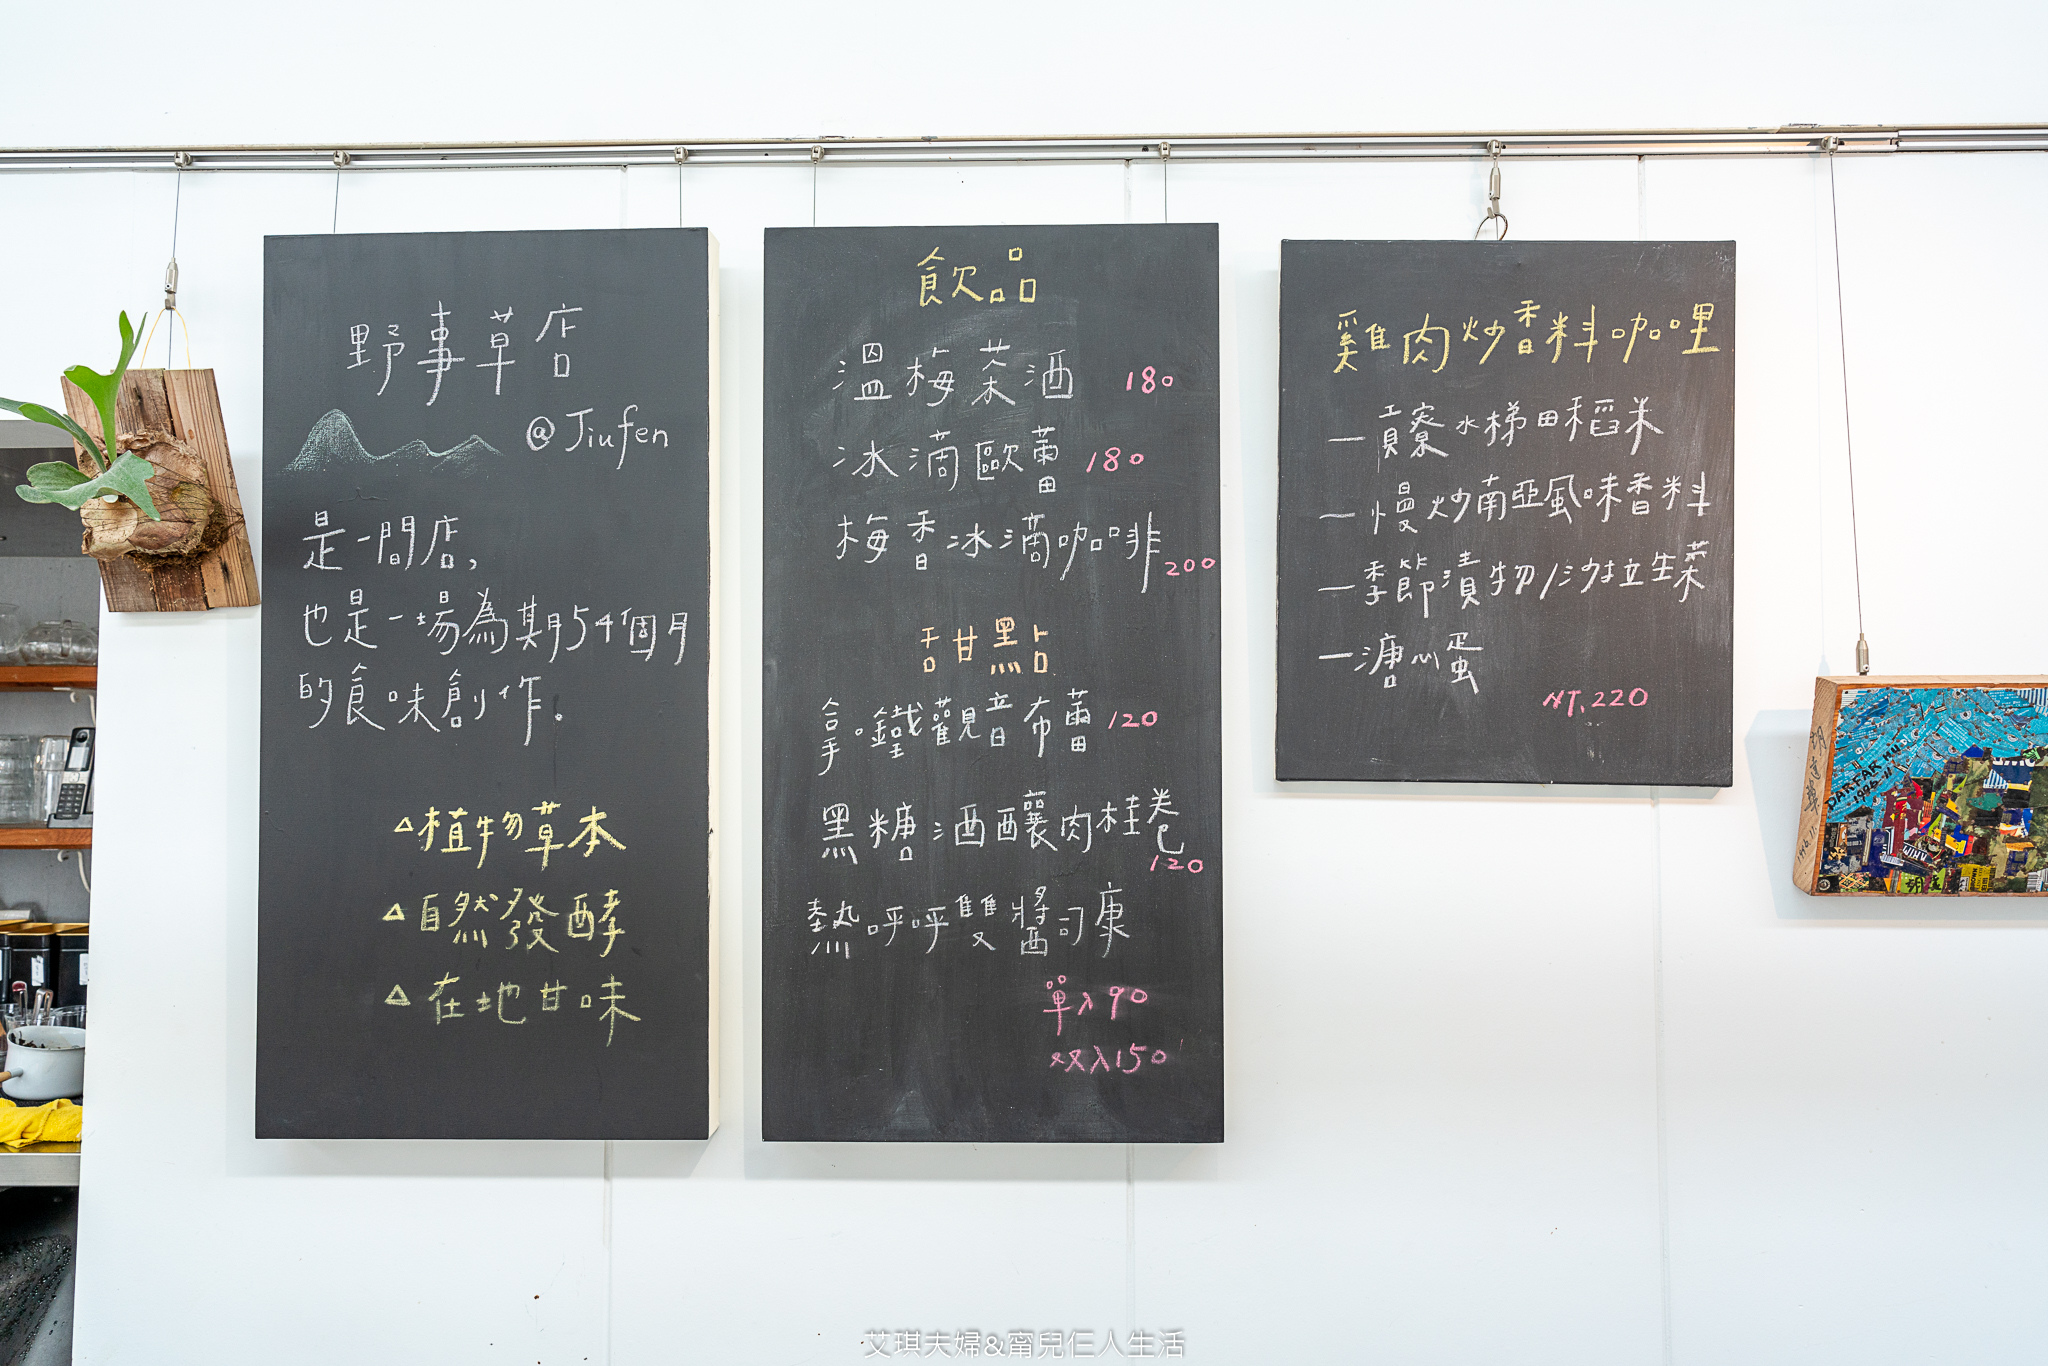 野事草店
@Jiufen
是一間店,
也是一場為期54個月
的食味創作。
△植物草本
△自然發酵
△在地甘味
飲品
溫梅茶酒 180
冰滴歐蕾 180
梅香冰滴咖啡 200
甜點
拿鐵觀音布蕾 120
黑糖酒釀肉桂卷 120
熱呼呼雙醬司康
單入90
双入150
雞肉炒香料咖哩
一貢寮水梯田稻米
一慢炒南亞風味香料
一季節漬物/沙拉生菜
一溏心蛋
NT.220
DAKFAK HU
艾琪夫婦&甯兒仨人生活